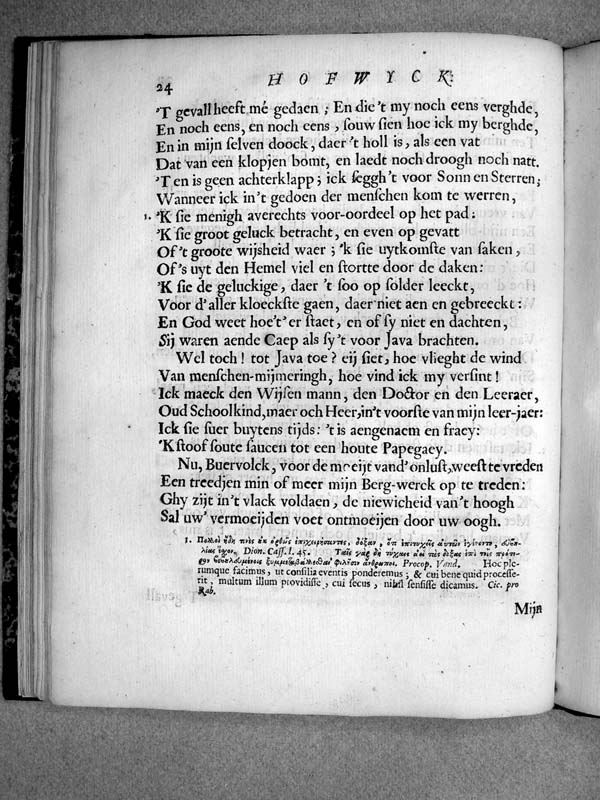 24 HOFWYCK.
'T gevall heeft mé gedaen; En die't my noch eens verghde,
En noch eens, en noch eens, souw sien hoe ick my berghde,
En in mijn selven doock, daer 't holl is, als een vat
Dat van een klopjen bomt, en laedt noch droogh noch natt.
'T en is geen achterklapp; ick segg h't voor Sonn en Sterren;
Wanneer ick in't gedoen der menschen kom te werren,
1. 'K sie menigh averechts voor-oordeel op het pad:
'K sie groot geluck betracht, en even op gevatt
Of 't groote wijsheid waer; 'k sie uytkomste van saken,
Of 's uyt den Hemel viel en stortte door de daken:
'K sie de geluckige, daer 't soo op solder leeckt,
Voor d'aller kloeckste gaen, daer niet aen en gebreeckt:
En God weet hoe't'er staet, en of sy niet en dachten,
Sij waren aende Caep als sy't voor Java brachten.
Wel toch! tot Java toe? eij siet, hoe vlieght de wind
Van menschen-mijmeringh, hoe vind ick my versint!
Ick maeck den Wijsen mann, den Doctor en den Leeraer,
Oud Schoolkind, maer och Heer, in't voorste van mijn leer-jaer:
Ick sie suer buytens tijds: 't is aengenaem en fraey:
'K stoof soute saucen tot een houte Papegaey.
Nu, Buervolck, voor de moeijt vand' onlust, weest te vreden
Een treedjen min of meer mijn Berg-werck op te treden:
Ghy zijt in't vlack voldaen, de niewicheid van't hoogh
Sal uw' vermoeijden voet ontmoeijen door uw oogh.
1. Πολλοὶ ἤδη τινὲς ἐκ ὀρθῶς ἐπιχειρήσαντες, δόξαν, ὅτι ἐπιτυχῶς αὐτῶν ἐγένοντο,
ἔχον. Dion. Cass. l. 45.
Procop. Vand. Hoc ple-
rumque facimus, ut consilia eventis ponderemus; & cui bene quid processe-
rit, multum illum providisse, cui secus, nihil sensisse dicamus. Cic. pro
Rab.
Mijn